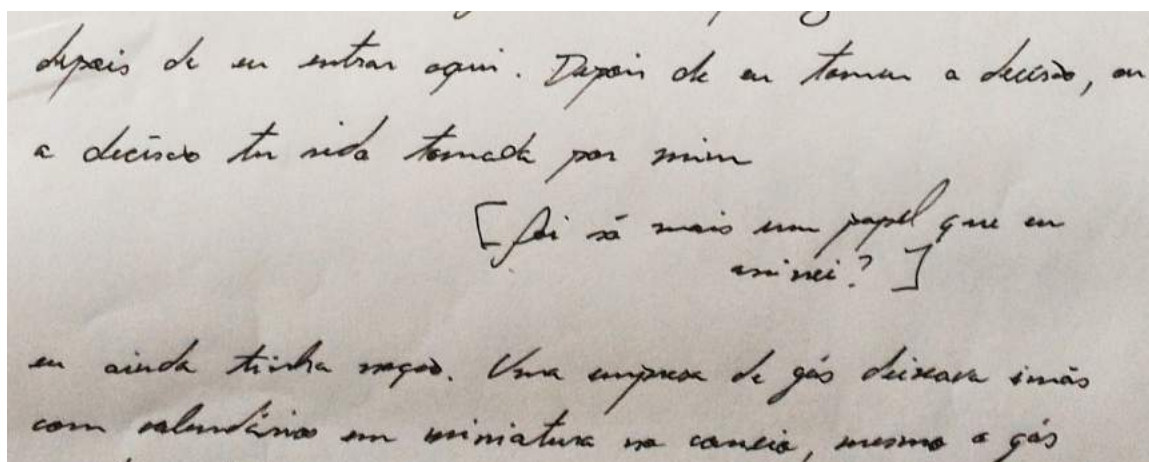 depois de eu entrar aqui. Depois de eu tomar a decisão, ou
a decisão ter sido tomada por mim
[foi só mais um papel que eu
assinei?]
eu ainda tinha noção. Uma empresa de gás deixava imãs
com calendários em miniatura no correio, mesmo o gás